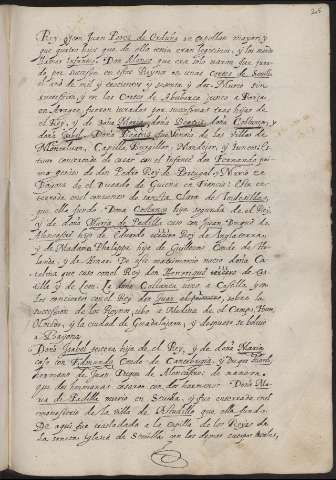 Rey, y Don Juan Perez de Orduña su capellan mayor; y
que quatro hijos que de ella tenia eran legitimos; y los mandò
llamar Infantes. Don Alonso que era solo varon, fue jura-
do por sucesor en estos Reynos en unas Cortes de Sevilla
el año de mil y trecientos y sesenta y dos. Murio sin
succession, y en las Cortes de
en Aragon fueron juradas por sus hijas de
el Rey, y de Doña Maria, doña Beatriz, doña Costanza, y
doña Isabel. Doña Beatriz fue Señora de las Villas de
Montalvan, Capilla, Burguillos, Mondejar, y
concertada de casar con el Infante don Fernando
genito de don Pedro Rey de Portugal, y Murio en
Bayona de el Ducado de Guiena en Francia. Està en-
terrada en el convento de Santa Clara de
que ella fundò. Doña Costanza hija segunda de el Rey,
y de doña Maria de Padilla casò con Juan Duque de
Alencastre hijo de Eduardo Rey de Inglaterra,
y de Madama Phelippa hija de Guillermo Conde de Ho-
landa, y de Henao. De este matrimonio nacio doña Ca-
talina que casò con el Rey don Henrrique tercero de Cas-
tilla y de Leon. La doña Costanza vino a Castilla, y con
los conciertos con el Rey don Juan el primero, sobre la
succession de los Reynos, ubo a Medina de el Campo,
Olmedo, y la ciudad de Guadalajara, y despues se bolvio
a Bayona.
Doña Isabel tercera hija de el Rey, y de doña Maria
casò con Edmundo Conde de Cantabrigia, y Duque
hermano de Juan Duque de Alencastre: de manera
que dos hermanas casaron con dos hermanos. Doña Ma-
ria de Padilla murio en Sevilla, y fue enterrada en el
monasterio de la villa de Astudillo que ella fundò.
De aqui fue trasladada a la capilla de los Reyes de
la sancta Iglesia de Sevilla con los demas cuerpos Reales,